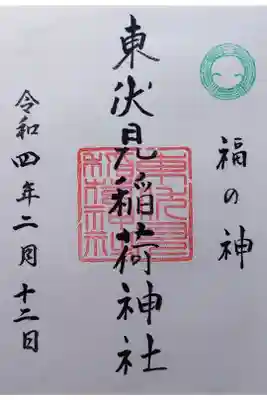 福の神
東伏見稲荷神社
令和四年二月十二日